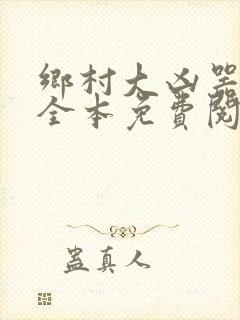 鄉村大凶器
全本免費閱
蠱真人